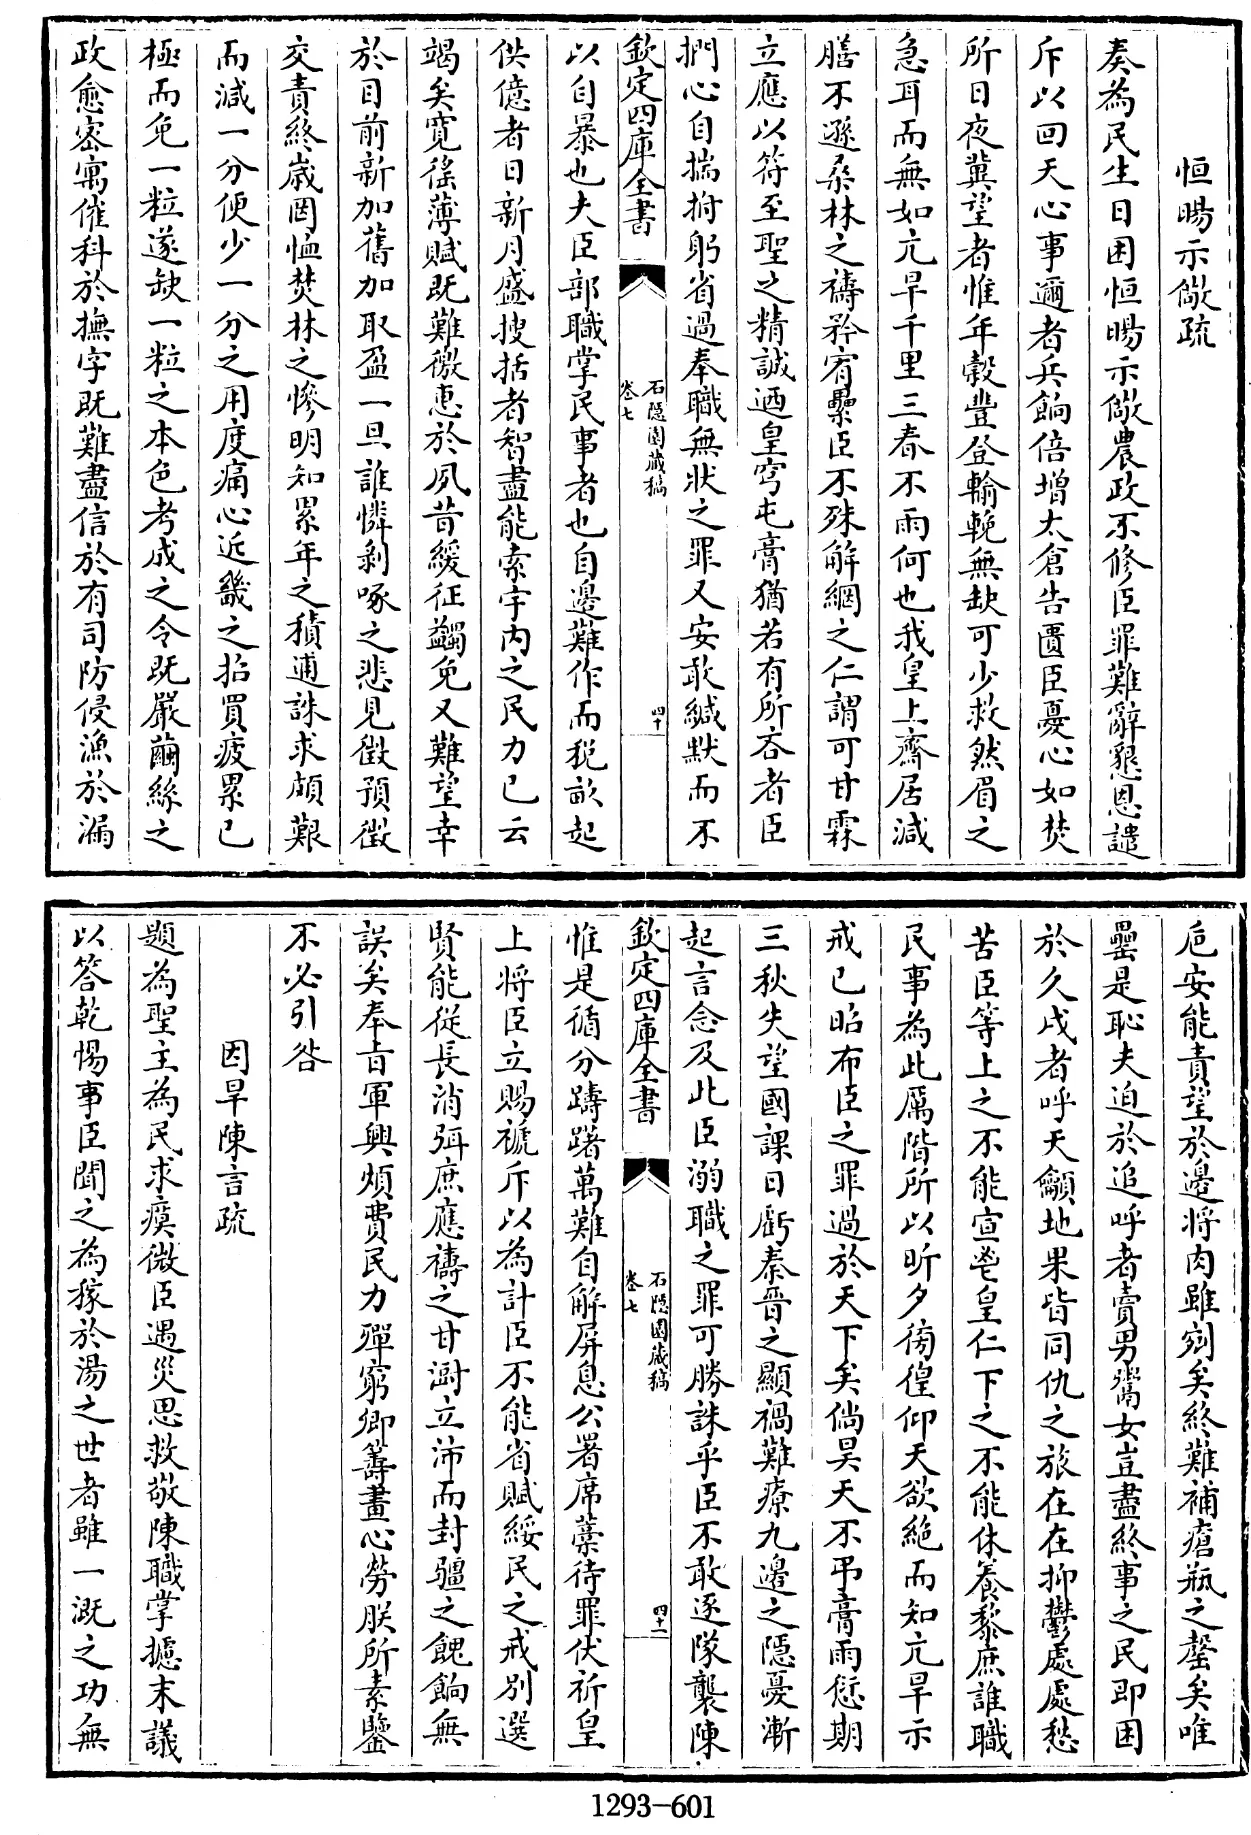 恒暘示儆疏
奏為民生日困恒暘示儆農政不修臣罪難辭懇恩譴
斥以回天心事邇者兵餉倍增太倉告匱臣憂心如焚
所日夜冀望者惟年穀豐登輸輓無缺可少救然眉之
急耳而無如亢旱千里三春不雨何也我皇上齋居減
膳不遜桑林之禱矜宥纍臣不殊解網之仁謂可甘霖
立應以符至聖之精誠迺皇穹屯膏猶若有所吝者臣
捫心自揣拊躬省過奉職無狀之罪又安敢緘默而不
欽定四庫全書
石隱園藏稿
卷七
四十
以自暴也夫臣部職掌民事者也自邊難作而税畝起
供億者日新月盛搜括者智盡能索宇内之民力已云
竭矣寛徭薄賦既難徼惠於夙昔緩征蠲免又難望幸
於目前新加舊加取盈一旦誰憐剥啄之悲見徵預徵
交責終嵗罔恤焚林之慘明知累年之積逋誅求頗艱
而減一分便少一分之用度痛心近畿之招買疲累已
極而免一粒遂缺一粒之本色考成之令既嚴繭絲之
政愈宻寓催科於撫字既難盡信於有司防侵漁於漏
巵安能責望於邊將肉雖剜矣終難補瘡瓶之罄矣唯
罍是恥夫迫於追呼者賣男鬻女豈盡終事之民即困
於久戍者呼天籲地果皆同仇之旅在在抑鬱處處愁
苦臣等上之不能宣鬯皇仁下之不能休養黎庶誰職
民事為此厲階所以昕夕徬徨仰天欲絶而知亢旱示
戒已昭布臣之罪過於天下矣倘昊天不弔膏雨愆期
三秋失望國課日虧秦晉之顯禍難療九邊之隱憂漸
起言念及此臣溺職之罪可勝誅乎臣不敢逐隊襲陳
欽定四庫全書
石隱園藏稿
卷七
四十一
惟是循分躊躇萬難自解屏息公署席藁待罪伏祈皇
上將臣立賜褫斥以為計臣不能省賦綏民之戒别選
賢能從長消弭庶應禱之甘澍立沛而封疆之餽餉無
誤矣奉㫖軍興煩費民力殫窮卿籌畫心勞朕所素鑒
不必引咎
因旱陳言疏
題為聖主為民求瘼微臣遇災思救敬陳職掌攄末議
以答乾惕事臣聞之為稼於湯之世者雖一溉之功無
1293-601